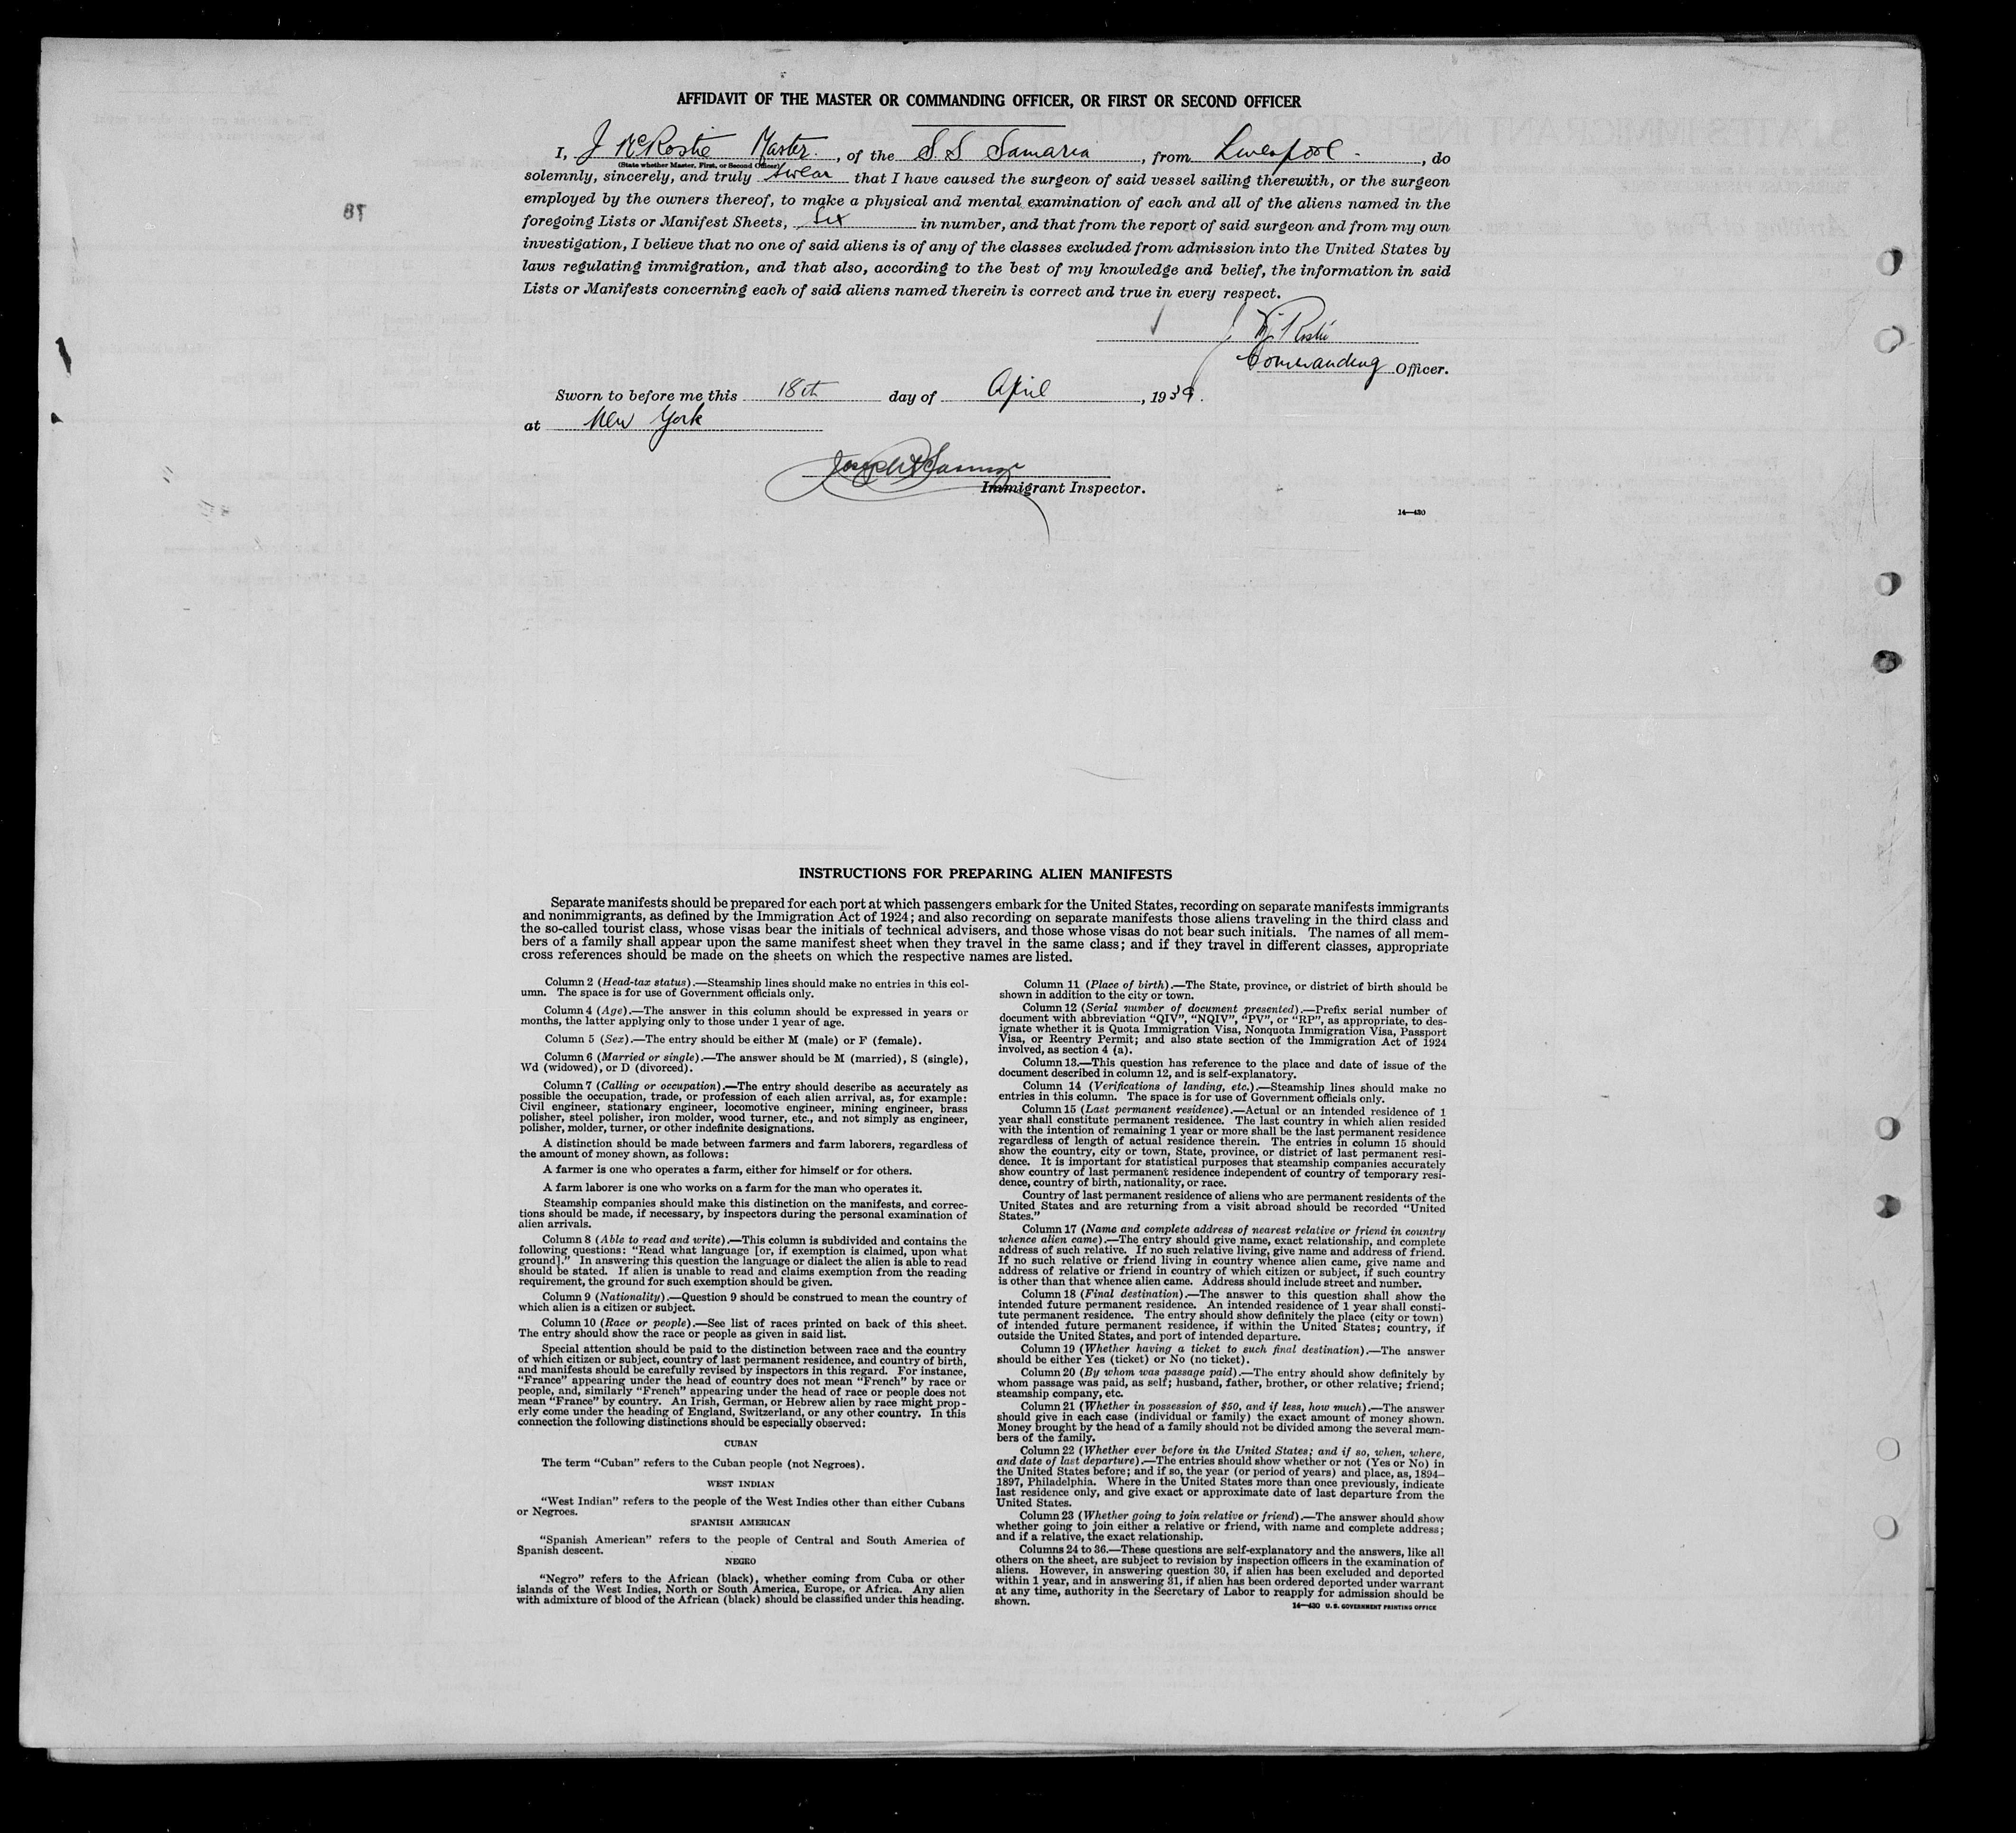 AFFIDAVIT OF THE MASTER OR COMMANDING OFFICER, OR FIRST OR SECOND OFFICER
I, J McRostie Master., of the S.S Samaria, from Liverpool -, do
(State whether Master, First, or Second Officer)
solemnly, sincerely, and truly swear that I have caused the surgeon of said vessel sailing therewith, or the surgeon
employed by the owners thereof, to make a physical and mental examination of each and all of the aliens named in the
foregoing Lists or Manifest Sheets, Six in number, and that from the report of said surgeon and from my own
investigation, I believe that no one of said aliens is of any of the classes excluded from admission into the United States by
laws regulating immigration, and that also, according to the best of my knowledge and belief, the information in said
Lists or Manifests concerning each of said aliens named therein is correct and true in every respect.
J McRostie
Commanding Officer.
Sworn to before me this 18th day of April, 1939.
at New York
Immigrant Inspector.
14—430
INSTRUCTIONS FOR PREPARING ALIEN MANIFESTS
Separate manifests should be prepared for each port at which passengers embark for the United States, recording on separate manifests immigrants
and nonimmigrants, as defined by the Immigration Act of 1924; and also recording on separate manifests those aliens traveling in the third class and
the so-called tourist class, whose visas bear the initials of technical advisers, and those whose visas do not bear such initials. The names of all mem-
bers of a family shall appear upon the same manifest sheet when they travel in the same class; and if they travel in different classes, appropriate
cross references should be made on the sheets on which the respective names are listed.
Column 2 (Head-tax status).—Steamship lines should make no entries in this col-
umn. The space is for use of Government officials only.
Column 4 (Age).—The answer in this column should be expressed in years or
months, the latter applying only to those under 1 year of age.
Column 5 (Sex).—The entry should be either M (male) or F (female).
Column 6 (Married or single).—The answer should be M (married), S (single),
Wd (widowed), or D (divorced).
Column 7 (Calling or occupation).—The entry should describe as accurately as
possible the occupation, trade, or profession of each alien arrival, as, for example:
Civil engineer, stationary engineer, locomotive engineer, mining engineer, brass
polisher, steel polisher, iron molder, wood turner, etc., and not simply as engineer,
polisher, molder, turner, or other indefinite designations.
A distinction should be made between farmers and farm laborers, regardless of
the amount of money shown, as follows:
A farmer is one who operates a farm, either for himself or for others.
A farm laborer is one who works on a farm for the man who operates it.
Steamship companies should make this distinction on the manifests, and correc-
tions should be made, if necessary, by inspectors during the personal examination of
alien arrivals.
Column 8 (Able to read and write).—This column is subdivided and contains the
following questions: “Read what language [or, if exemption is claimed, upon what
ground].” In answering this question the language or dialect the alien is able to read
should be stated. If alien is unable to read and claims exemption from the reading
requirement, the ground for such exemption should be given.
Column 9 (Nationality).—Question 9 should be construed to mean the country of
which alien is a citizen or subject.
Column 10 (Race or people).—See list of races printed on back of this sheet.
The entry should show the race or people as given in said list.
Special attention should be paid to the distinction between race and the country
of which citizen or subject, country of last permanent residence, and country of birth,
and manifests should be carefully revised by inspectors in this regard. For instance,
“France” appearing under the head of country does not mean “French” by race or
people, and, similarly “French” appearing under the head of race or people does not
mean “France” by country. An Irish, German, or Hebrew alien by race might prop-
erly come under the heading of England, Switzerland, or any other country. In this
connection the following distinctions should be especially observed:
CUBAN
The term “Cuban” refers to the Cuban people (not Negroes).
WEST INDIAN
“West Indian” refers to the people of the West Indies other than either Cubans
or Negroes.
SPANISH AMERICAN
“Spanish American” refers to the people of Central and South America of
Spanish descent.
NEGRO
“Negro” refers to the African (black), whether coming from Cuba or other
islands of the West Indies, North or South America, Europe, or Africa. Any alien
with admixture of blood of the African (black) should be classified under this heading.
Column 11 (Place of birth).—The State, province, or district of birth should be
shown in addition to the city or town.
Column 12 (Serial number of document presented).—Prefix serial number of
document with abbreviation “QIV”, “NQIV”, “PV”, or “RP”, as appropriate, to des-
ignate whether it is Quota Immigration Visa, Nonquota Immigration Visa, Passport
Visa, or Reentry Permit; and also state section of the Immigration Act of 1924
involved, as section 4 (a).
Column 13.—This question has reference to the place and date of issue of the
document described in column 12, and is self-explanatory.
Column 14 (Verifications of landing, etc.).—Steamship lines should make no
entries in this column. The space is for use of Government officials only.
Column 15 (Last permanent residence).—Actual or an intended residence of 1
year shall constitute permanent residence. The last country in which alien resided
with the intention of remaining 1 year or more shall be the last permanent residence
regardless of length of actual residence therein. The entries in column 15 should
show the country, city or town, State, province, or district of last permanent resi-
dence. It is important for statistical purposes that steamship companies accurately
show country of last permanent residence independent of country of temporary resi-
dence, country of birth, nationality, or race.
Country of last permanent residence of aliens who are permanent residents of the
United States and are returning from a visit abroad should be recorded “United
States.”
Column 17 (Name and complete address of nearest relative or friend in country
whence alien came).—The entry should give name, exact relationship, and complete
address of such relative. If no such relative living, give name and address of friend.
If no such relative or friend living in country whence alien came, give name and
address of relative or friend in country of which citizen or subject, if such country
is other than that whence alien came. Address should include street and number.
Column 18 (Final destination).—The answer to this question shall show the
intended future permanent residence. An intended residence of 1 year shall consti-
tute permanent residence. The entry should show definitely the place (city or town)
of intended future permanent residence, if within the United States; country, if
outside the United States, and port of intended departure.
Column 19 (Whether having a ticket to such final destination).—The answer
should be either Yes (ticket) or No (no ticket).
Column 20 (By whom was passage paid).—The entry should show definitely by
whom passage was paid, as self; husband, father, brother, or other relative; friend;
steamship company, etc.
Column 21 (Whether in possession of $50, and if less, how much).—The answer
should give in each case (individual or family) the exact amount of money shown.
Money brought by the head of a family should not be divided among the several mem-
bers of the family.
Column 22 (Whether ever before in the United States; and if so, when, where,
and date of last departure).—The entries should show whether or not (Yes or No) in
the United States before; and if so, the year (or period of years) and place, as, 1894–
1897, Philadelphia. Where in the United States more than once previously, indicate
last residence only, and give exact or approximate date of last departure from the
United States.
Column 23 (Whether going to join relative or friend).—The answer should show
whether going to join either a relative or friend, with name and complete address;
and if a relative, the exact relationship.
Columns 24 to 36.—These questions are self-explanatory and the answers, like all
others on the sheet, are subject to revision by inspection officers in the examination of
aliens. However, in answering question 30, if alien has been excluded and deported
within 1 year, and in answering 31, if alien has been ordered deported under warrant
at any time, authority in the Secretary of Labor to reapply for admission should be
shown.
14—430 U. S. GOVERNMENT PRINTING OFFICE